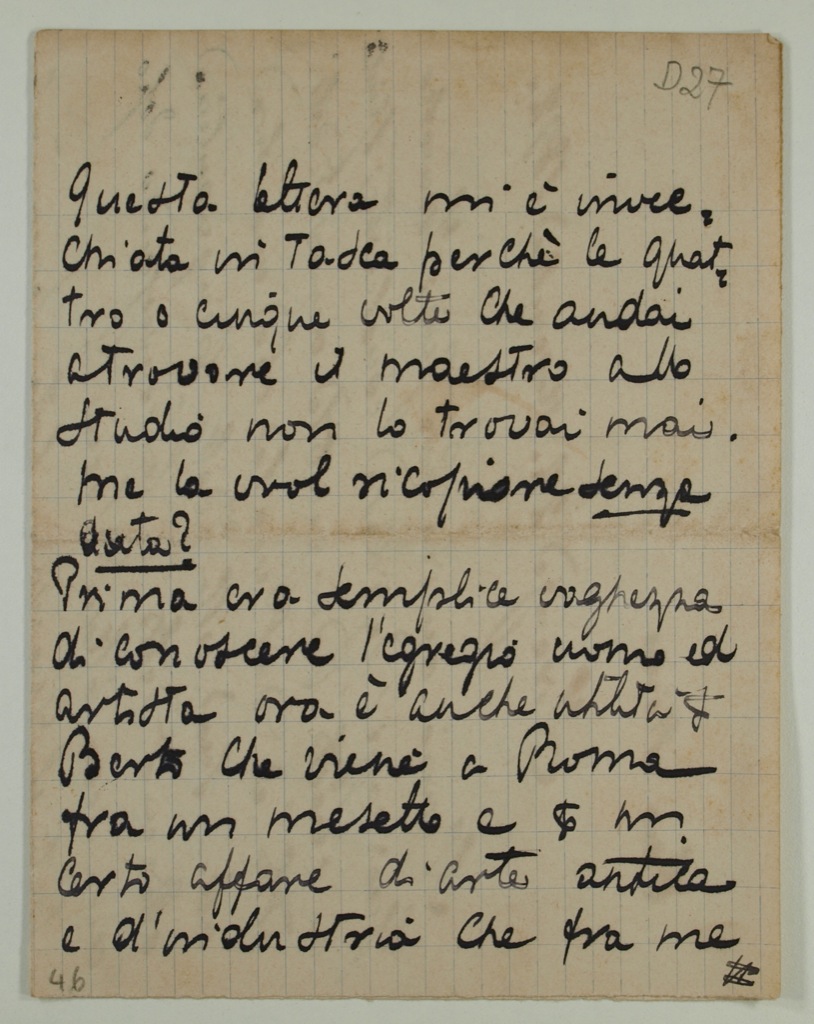 D27
Questa lettera mi è invec=
chiata in Tasca perchè le quat=
tro o cinque volte che andai
a trovare il maestro allo
studio non lo trovai mai.
me la vuol ricopiare senza
data?
Prima era semplice vaghezza
di conoscere l'egregio uomo ed
artista ora è anche utilità
Berto che viene a Roma
fra un mesetto e un
certo affare di arte antica
e d'industria che fra me
46